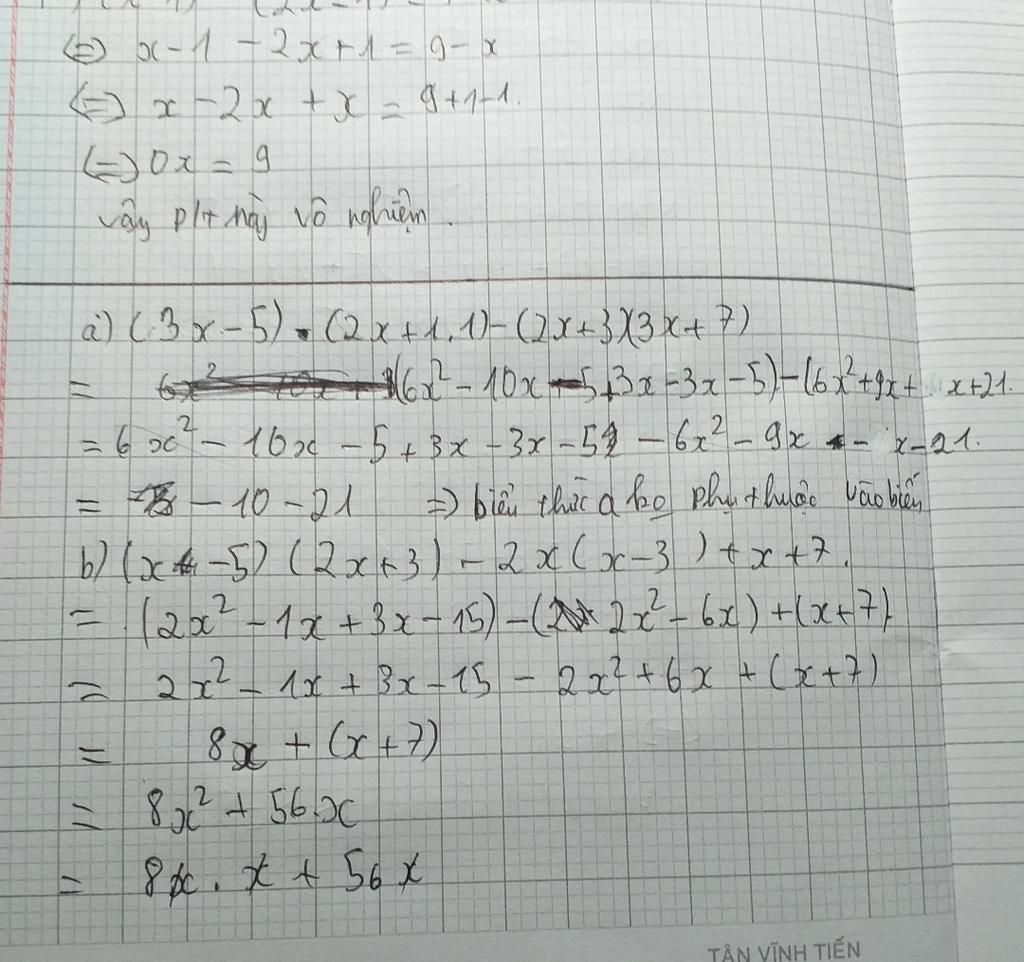 (2x-1)
⇔ x-1-2x+1=9-x
⇔ x-2x+x=9+1-1.
⇔ 0x=9
vậy pt này vô nghiệm.
a) (3x-5).(2x+1.1)-(2x+3)(3x+7)
= (6x²-10x-5+3x-3x-5)-(6x²+9x+ x+21.
= 6x²-10x-5+3x-3x-5-6x²-9x-x-21.
= -10-21 ⇒ biểu thức a ko phụ thuộc vào biến
b) (x-5)(2x+3)-2x(x-3)+x+7.
= (2x²-1x+3x-15)-(2x²-6x)+(x+7)
= 2x²-1x+3x-15-2x²+6x+(x+7)
= 8x+(x+7)
= 8x²+56x
= 8x.x+56x
TÂN VĨNH TIẾN